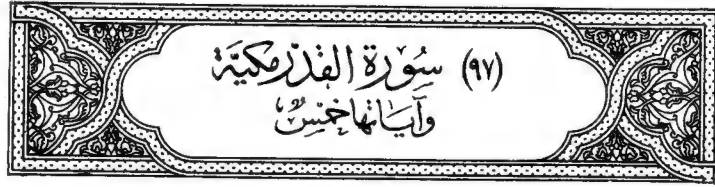 (٩٧) سُورَة القَدْرِ مَكيَّة
وَآيَاتهَا خَمْسٌ